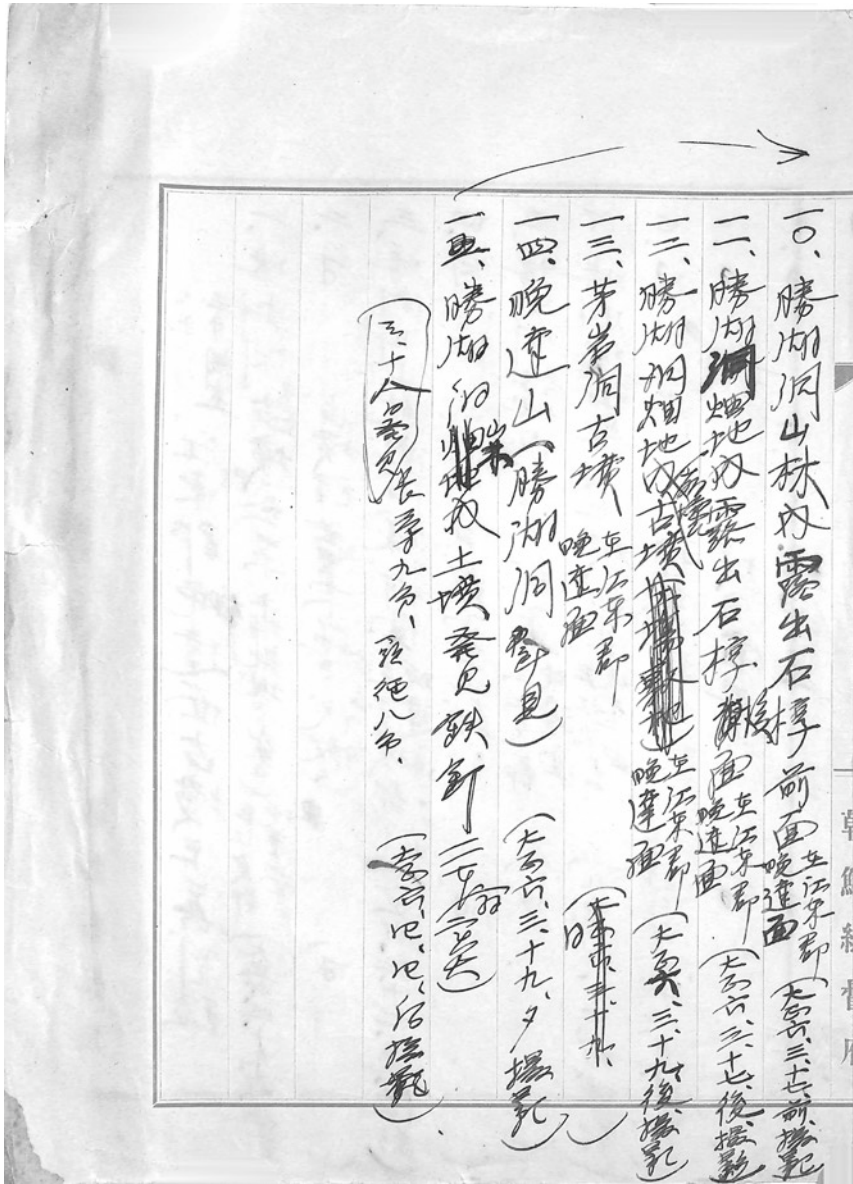 一〇、勝湖洞山林内露出石槨前面 在江东郡晩達面 (大正六、三、十七、前、撮影)
一一、勝湖洞畑地内露出石槨 後面 在江东郡晩達面 (大正六、三、十七、後、撮影)
一二、勝湖洞畑地内古墳 在江东郡晩達面 (大正六、三、十九、後、撮影)
一三、茅岩洞古墳 在江东郡晩達面
一四、晩達山(勝湖洞 見) (大正六、三、十九、夕 撮影)
一五、勝湖洞 内土墳発見鉄釘
発見 長 九分、頭径八分、
(大正六、四、四、后 撮影)
朝鮮総督府